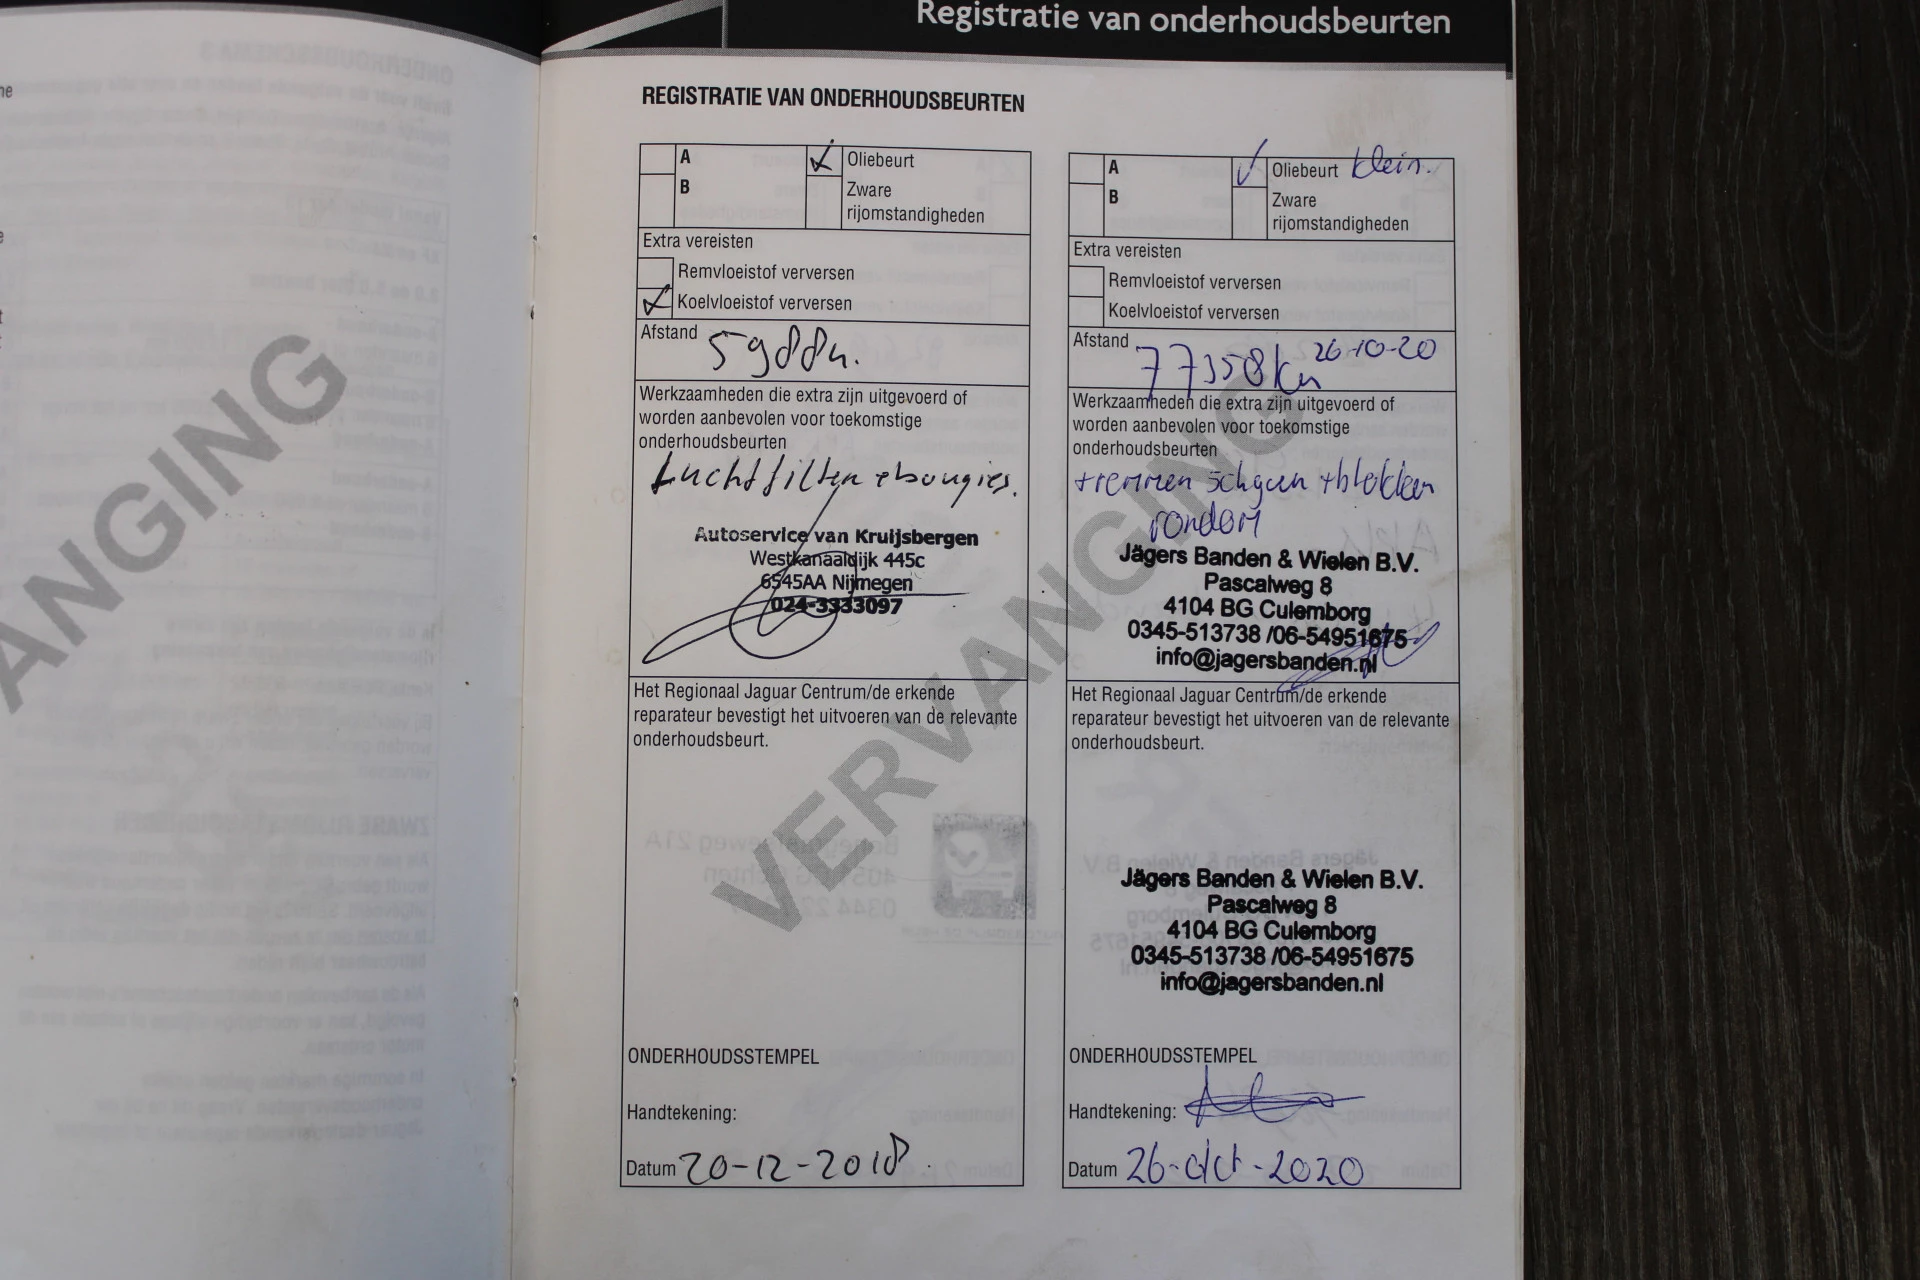 Registratie van onderhoudsbeurten
REGISTRATIE VAN ONDERHOUDSBEURTEN
A
B
Oliebeurt
Zware
rijomstandigheden
Extra vereisten
Remvloeistof verversen
Koelvloeistof verversen
Afstand
Werkzaamheden die extra zijn uitgevoerd of
worden aanbevolen voor toekomstige
onderhoudsbeurten
Luchtfilter + bougies.
Autoservice van Kruijsbergen
Westkanaaldijk 445c
6545AA Nijmegen
024-3333097
Het Regionaal Jaguar Centrum/de erkende
reparateur bevestigt het uitvoeren van de relevante
onderhoudsbeurt.
ONDERHOUDSSTEMPEL
Handtekening:
Datum 20-12-2018
A
B
Oliebeurt klein.
Zware
rijomstandigheden
Extra vereisten
Remvloeistof verversen
Koelvloeistof verversen
Afstand 77358km 26-10-20
Werkzaamheden die extra zijn uitgevoerd of
worden aanbevolen voor toekomstige
onderhoudsbeurten
+remmen schijven +blokken
rondom
Jägers Banden & Wielen B.V.
Pascalweg 8
4104 BG Culemborg
0345-513738 /06-54951675
info@jagersbanden.nl
Het Regionaal Jaguar Centrum/de erkende
reparateur bevestigt het uitvoeren van de relevante
onderhoudsbeurt.
Jägers Banden & Wielen B.V.
Pascalweg 8
4104 BG Culemborg
0345-513738 /06-54951675
info@jagersbanden.nl
ONDERHOUDSSTEMPEL
Handtekening:
Datum 26-okt-2020
VERVANGING
ANGING